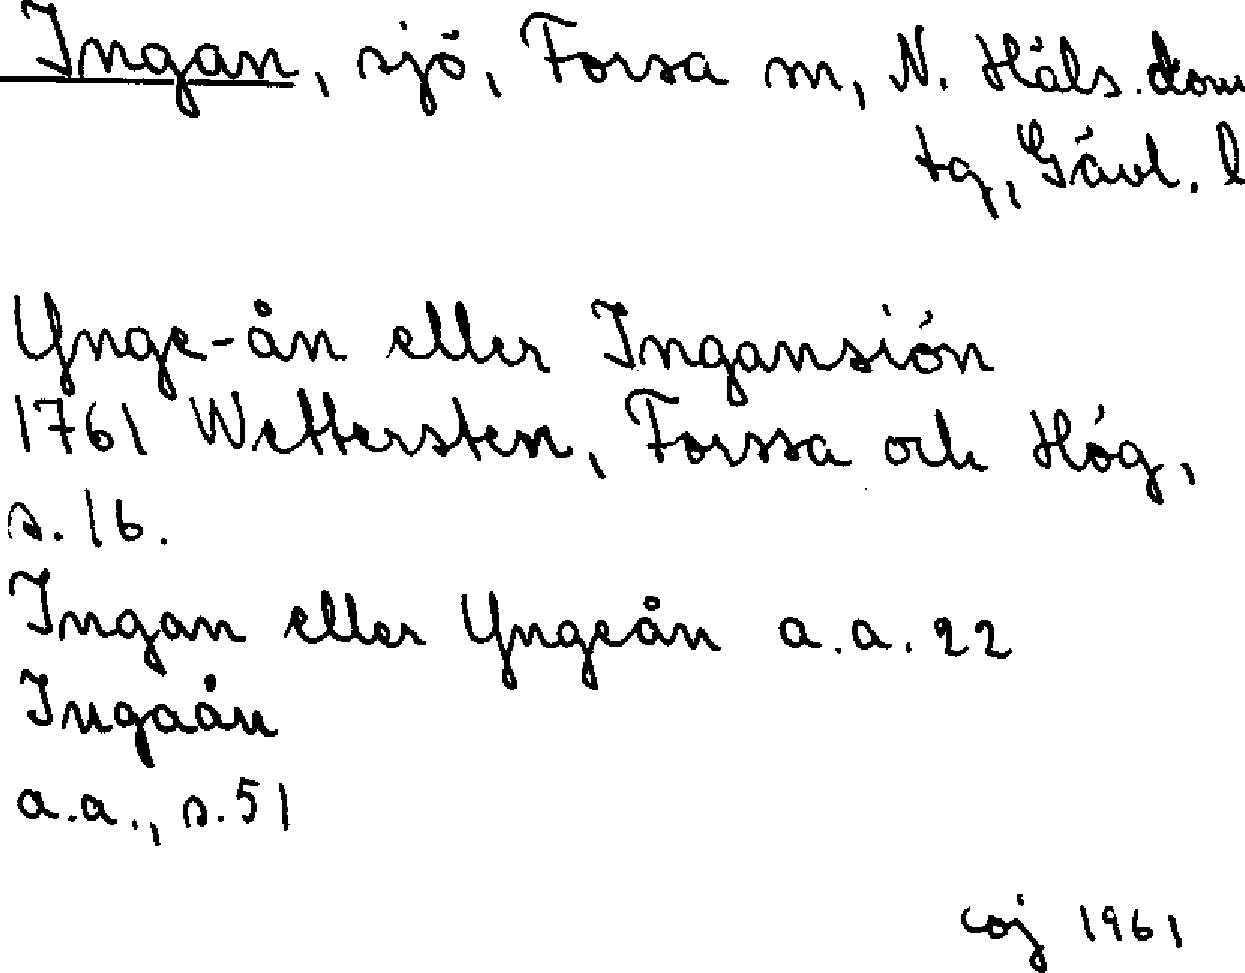 Ingan, sjö, Forsa sn, N. Häls. dom
tg, Gävl. l
Ynge-ån eller Ingansión
1761 Wettersten, Forssa och Hög,
s. 16.
Ingan eller Yngeån a.a. 22
Ingaån
a.a., s. 51
coj 1961